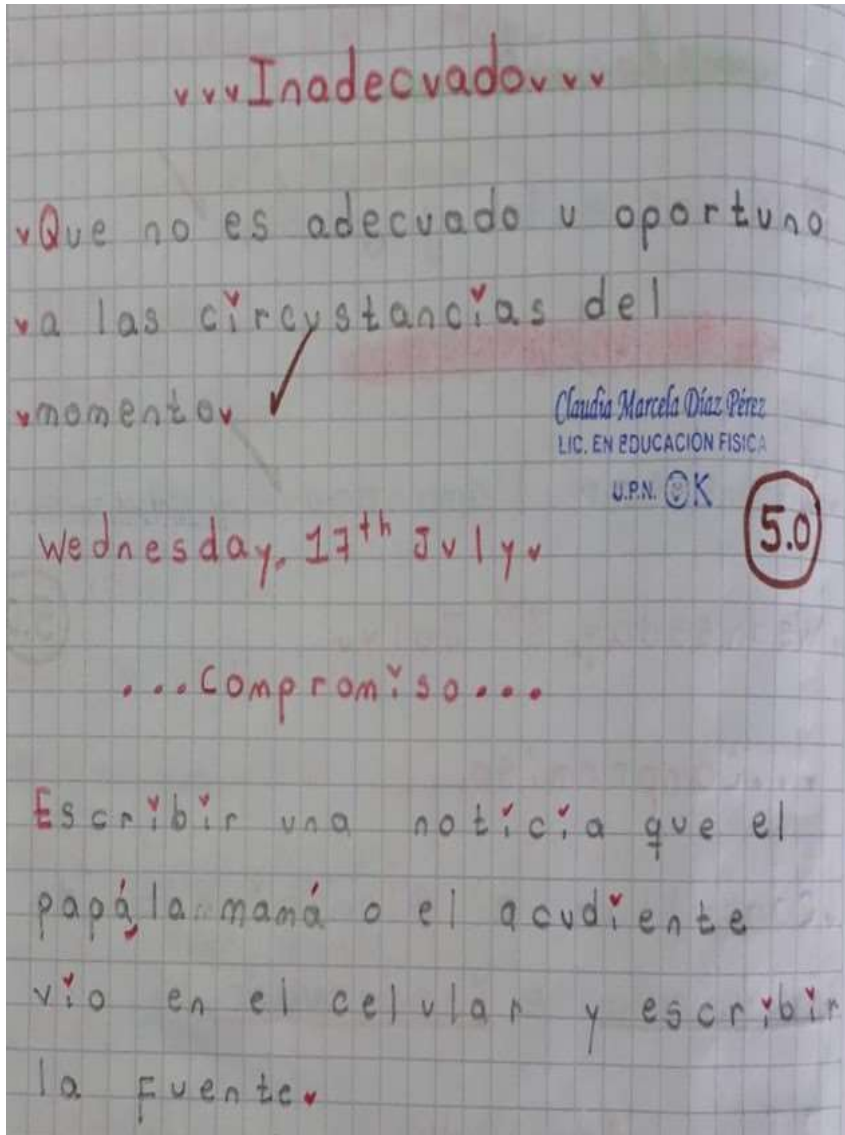 Inadecuado
Que no es adecuado u oportuno
a las circustancias del
momento
Claudia Marcela Díaz Pérez
LIC. EN EDUCACIÓN FISICA
U.P.N. OK
5.0
Wednesday, 17th July
...Compromiso...
Escribir una noticia que el
papá, la mamá o el acudiente
vio en el celular y escribir
la Fuente.